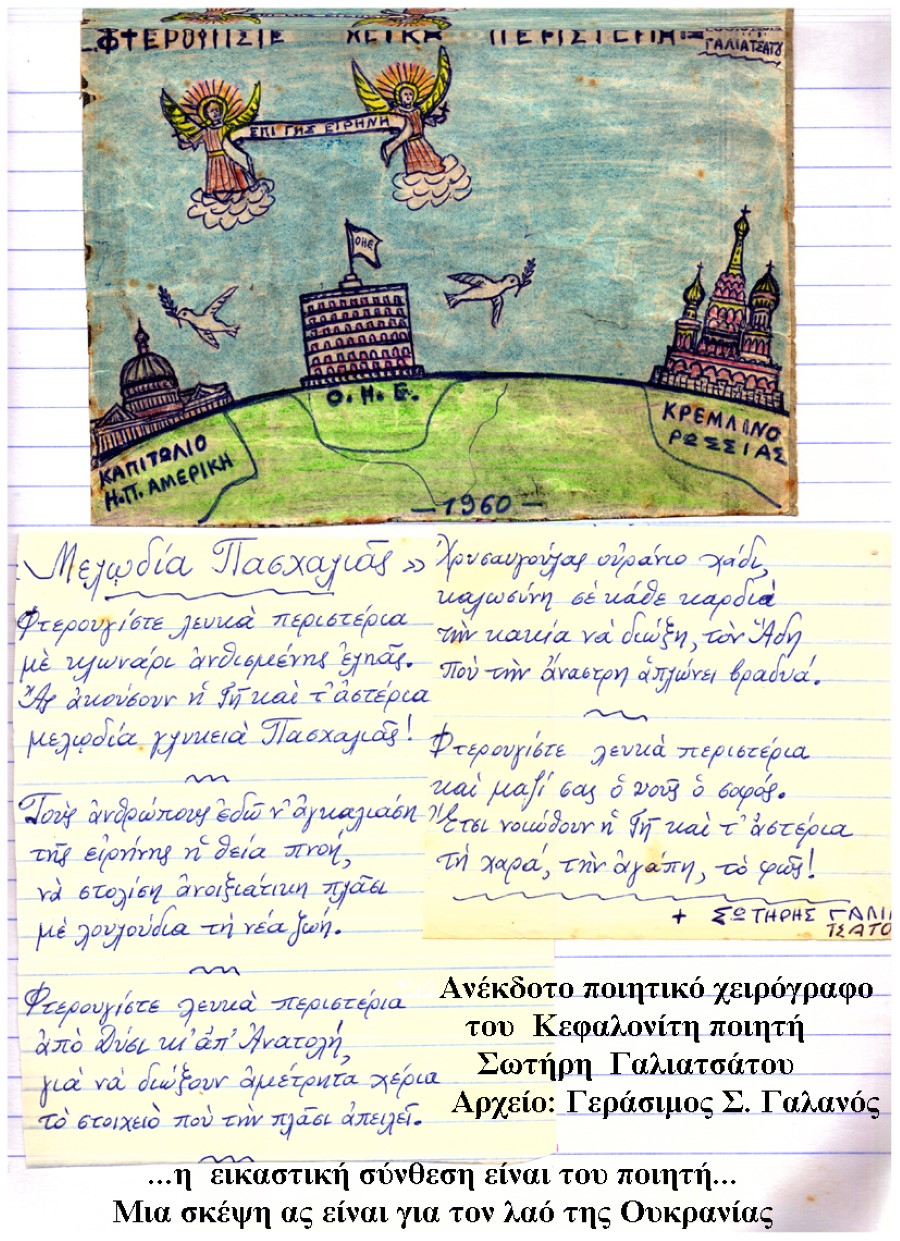 ΦΤΕΡΟΥΓΙΣΤΕ ΛΕΥΚΑ ΠΕΡΙΣΤΕΡΙΑ
ΓΑΛΙΑΤΣΑΤΟΥ
ΕΠΙ ΓΗΣ ΕΙΡΗΝΗ
ΟΗΕ
Ο.Η.Ε.
ΚΑΠΙΤΩΛΙΟ
Η.Π. ΑΜΕΡΙΚΗ
ΚΡΕΜΛΙΝΟ
ΡΩΣΣΙΑΣ
—1960—
Μελῳδία Πασχαλιᾶς »
Φτερουγίστε λευκὰ περιστέρια
μὲ κλωνάρι ἀνθισμένης ἐληᾶς.
Ἄς ἀκούσουν ἡ Γῆ καὶ τ' ἀστέρια
μελῳδία γλυκειὰ Πασχαλιᾶς!
Τοὺς ἀνθρώπους ἐδῶ ν' ἀγκαλιάση
τῆς εἰρήνης ἡ θεία πνοή,
νὰ στολίση ἀνοιξιάτικη πλᾶσι
μὲ λουλούδια τὴ νέα ζωή.
Φτερουγίστε λευκὰ περιστέρια
ἀπὸ Δύσι κι' ἀπ' Ἀνατολή,
γιὰ νὰ διώξουν ἀμέτρητα χέρια
τὸ στοιχειὸ ποὺ τὴν πλᾶσι ἀπειλεῖ.
Χρυσαυγούλας οὐράνιο χάδι,
καλωσύνη σὲ κάθε καρδιὰ
τὴν κακία νὰ διώξη, τὸν Ἅδη
ποὺ τὴν ἄναστρη ἁπλώνει βραδυά.
Φτερουγίστε λευκὰ περιστέρια
καὶ μαζί σας ὁ νοῦς ὁ σοφός.
Ἔτσι νοιώθουν ἡ Γῆ καὶ τ' ἀστέρια
τὴ χαρά, τὴν ἀγάπη, τὸ φῶς!
+ ΣΩΤΗΡΗΣ ΓΑΛΙΑ
ΤΣΑΤΟ
Ανέκδοτο ποιητικό χειρόγραφο
του Κεφαλονίτη ποιητή
Σωτήρη Γαλιατσάτου
Αρχείο: Γεράσιμος Σ. Γαλανός
...η εικαστική σύνθεση είναι του ποιητή...
Μια σκέψη ας είναι για τον λαό της Ουκρανίας